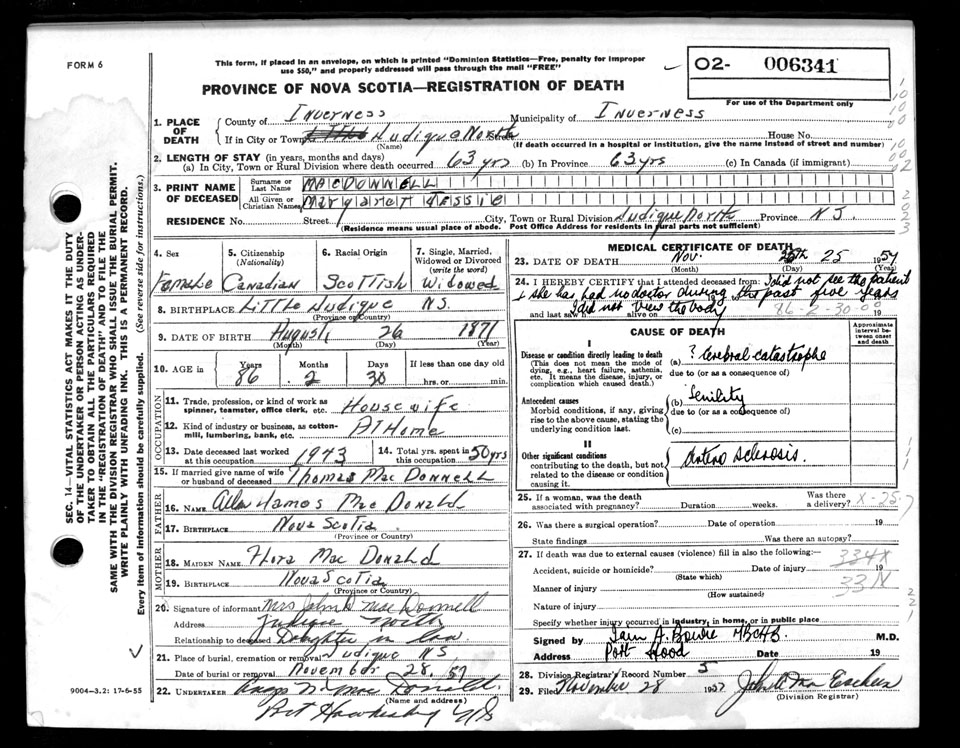 FORM 6
This form, if placed in an envelope, on which is printed "Dominion Statistics—Free, penalty for improper
use $50," and properly addressed will pass through the mail "FREE"
02- 006341
For use of the Department only
PROVINCE OF NOVA SCOTIA—REGISTRATION OF DEATH
1. PLACE OF DEATH
County of Inverness Municipality of Inverness
If in City or Town Judique North Street House No.
(Name) (If death occurred in a hospital or institution, give the name instead of street and number)
2. LENGTH OF STAY (in years, months and days)
(a) In City, Town or Rural Division where death occurred 63 yrs (b) In Province 63 yrs (c) In Canada (if immigrant)
3. PRINT NAME OF DECEASED
Surname or Last Name MACDONNELL
All Given or Christian Names Margaret Jessie
RESIDENCE No. Street City, Town or Rural Division Judique North Province N S.
(Residence means usual place of abode. Post Office Address for residents in rural parts not sufficient)
4. Sex Female
5. Citizenship (Nationality) Canadian
6. Racial Origin Scottish
7. Single, Married, Widowed or Divorced (write the word) Widowed
8. BIRTHPLACE Little Judique N S.
(Province or Country)
9. DATE OF BIRTH August 26 1871
(Month) (Day) (Year)
10. AGE in Years 86 Months 2 Days 30 If less than one day old hrs. or min.
OCCUPATION
11. Trade, profession, or kind of work as spinner, teamster, office clerk, etc. Housewife
12. Kind of industry or business, as cotton-mill, lumbering, bank, etc. At Home
13. Date deceased last worked at this occupation 1943
14. Total yrs. spent in this occupation 50 yrs
15. If married give name of wife or husband of deceased Thomas Mac Donnell
FATHER
16. NAME Mac Donald
17. BIRTHPLACE Nova Scotia
(Province or Country)
MOTHER
18. MAIDEN NAME Flora Mac Donald
19. BIRTHPLACE Nova Scotia
(Province or Country)
20. Signature of informant Mrs John D Mac Donnell
Address Judique North
Relationship to deceased Daughter in law
21. Place of burial, cremation or removal Judique N S
Date of burial or removal November 28, 57
22. UNDERTAKER Mac Donald
(Name and address)
Port Hawkesbury NS
9004-3.2: 17-6-55
MEDICAL CERTIFICATE OF DEATH
23. DATE OF DEATH Nov. 25 1957
(Month) (Day) (Year)
24. I HEREBY CERTIFY that I attended deceased from: I did not see the patient
& she has had no doctor during the past five years
and last saw alive on 19
I did not view the body 86-2-30
CAUSE OF DEATH
Approximate interval between onset and death
I
Disease or condition directly leading to death (a) ? Cerebral catastrophe
(This does not mean the mode of dying, e.g., heart failure, asthenia, etc. It means the disease, injury, or complication which caused death.)
due to (or as a consequence of)
Antecedent causes (b) Senility
Morbid conditions, if any, giving rise to the above cause, stating the underlying condition last.
due to (or as a consequence of)
(c)
II
Other significant conditions
contributing to the death, but not related to the disease or condition causing it.
Arterio sclerosis.
25. If a woman, was the death associated with pregnancy? Duration weeks. Was there a delivery? X-25-7
26. Was there a surgical operation? Date of operation 19
State findings Was there an autopsy?
27. If death was due to external causes (violence) fill in also the following:— 334X
Accident, suicide or homicide? Date of injury 19
(State which)
Manner of injury 33N
(How sustained)
Nature of injury
Specify whether injury occurred in industry, in home, or in public place
Signed by Iain A. Bowie MBCHB. M.D.
Address Port Hood Date 19
28. Division Registrar's Record Number 5
29. Filed November 28 1957
(Division Registrar)
SEC. 14—VITAL STATISTICS ACT MAKES IT THE DUTY
OF THE UNDERTAKER OR PERSON ACTING AS UNDER-
TAKER TO OBTAIN ALL THE PARTICULARS REQUIRED
IN THE "REGISTRATION OF DEATH" AND TO FILE THE
SAME WITH THE DIVISION REGISTRAR WHO SHALL ISSUE THE BURIAL PERMIT.
WRITE PLAINLY WITH UNFADING INK. THIS IS A PERMANENT RECORD.
Every item of information should be carefully supplied. (See reverse side for instructions.)